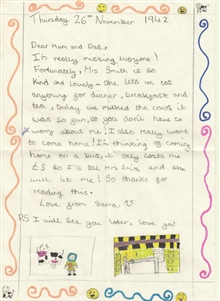 Thursday 26th November 1942
Dear Mam and Dad,
I'm really missing everyone!
Fortunately, Mrs Smith is so
kind and lovely – she lets us eat
anything for dinner, breakfast and
tea, today we milked the cows, it
was so fun, so you don't have to
worry about me! I also really want
to come home! I'm thinking of coming
home on a bus, it only costs me
£5 so I'll tell Mrs Smith and she
will let me! So thanks for
reading this.
Love from Sarra.
P.S I will see you later, love you!